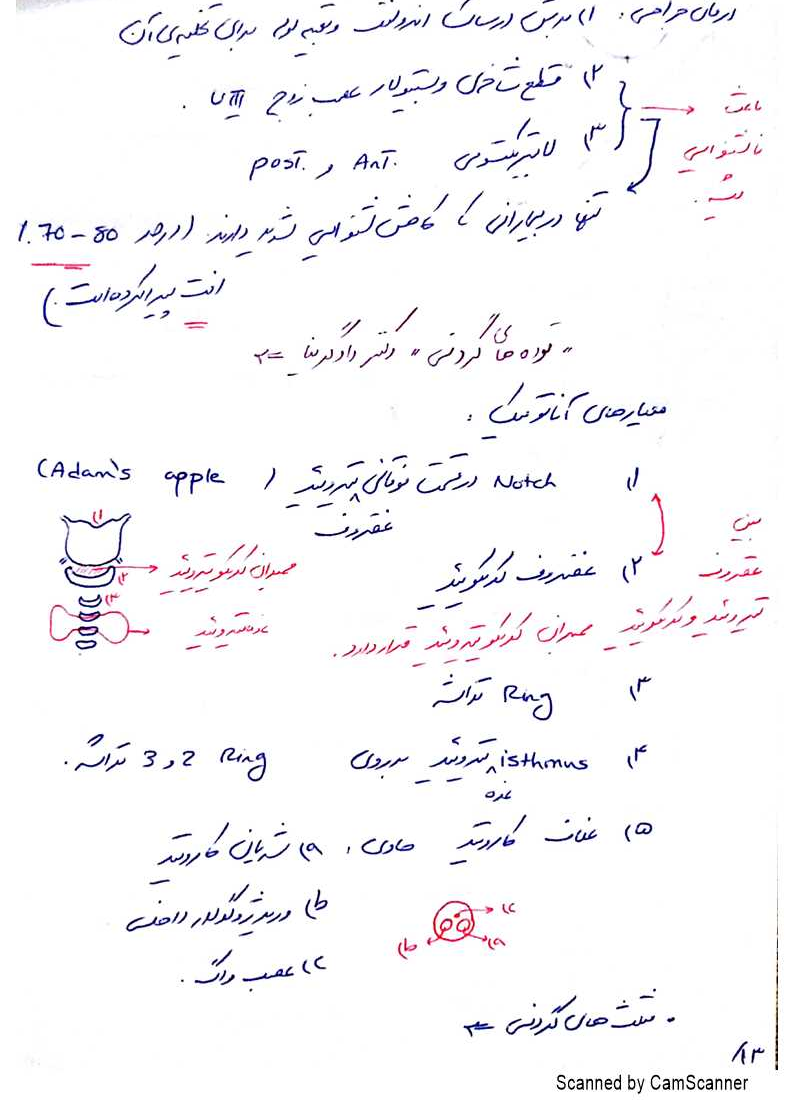 درمان جراحی: ۱) برش در ساک اندولنف و تعبیه لوله برای تخلیه‌ی آن
۲) قطع شاخه‌ی وستیبولار عصب زوج VIII.
۳) لابیرنتکتومی
post. و Ant.
باعث
ناشنوایی
تنها در بیمارانی که کاهش شنوایی شدید دارند (درصد 80 - 70 ٪.
افت پیدا کرده است.)
"توده های گردنی" دکتر دادگرنیا =>
معیارهای آناتومیک:
۱) Notch در قسمت فوقانی غضروف تیروئید (Adam's apple)
۲) غضروف کریکوئید
بین
غضروف
تیروئید و کریکوئید ممبران کریکوتیروئید قرار دارد.
۱)
ممبران کریکوتیروئید
۲)
۳)
غده تیروئید
۳) Ring تراشه
۴) isthmus غده تیروئید بر روی Ring 2 و 3 تراشه.
۵) غلاف کاروتید حاوی: a) شریان کاروتید
b) ورید ژوگولار داخلی
c) عصب واگ.
c)
b)
a)
• مثلث های گردنی =>
۱۳/
Scanned by CamScanner